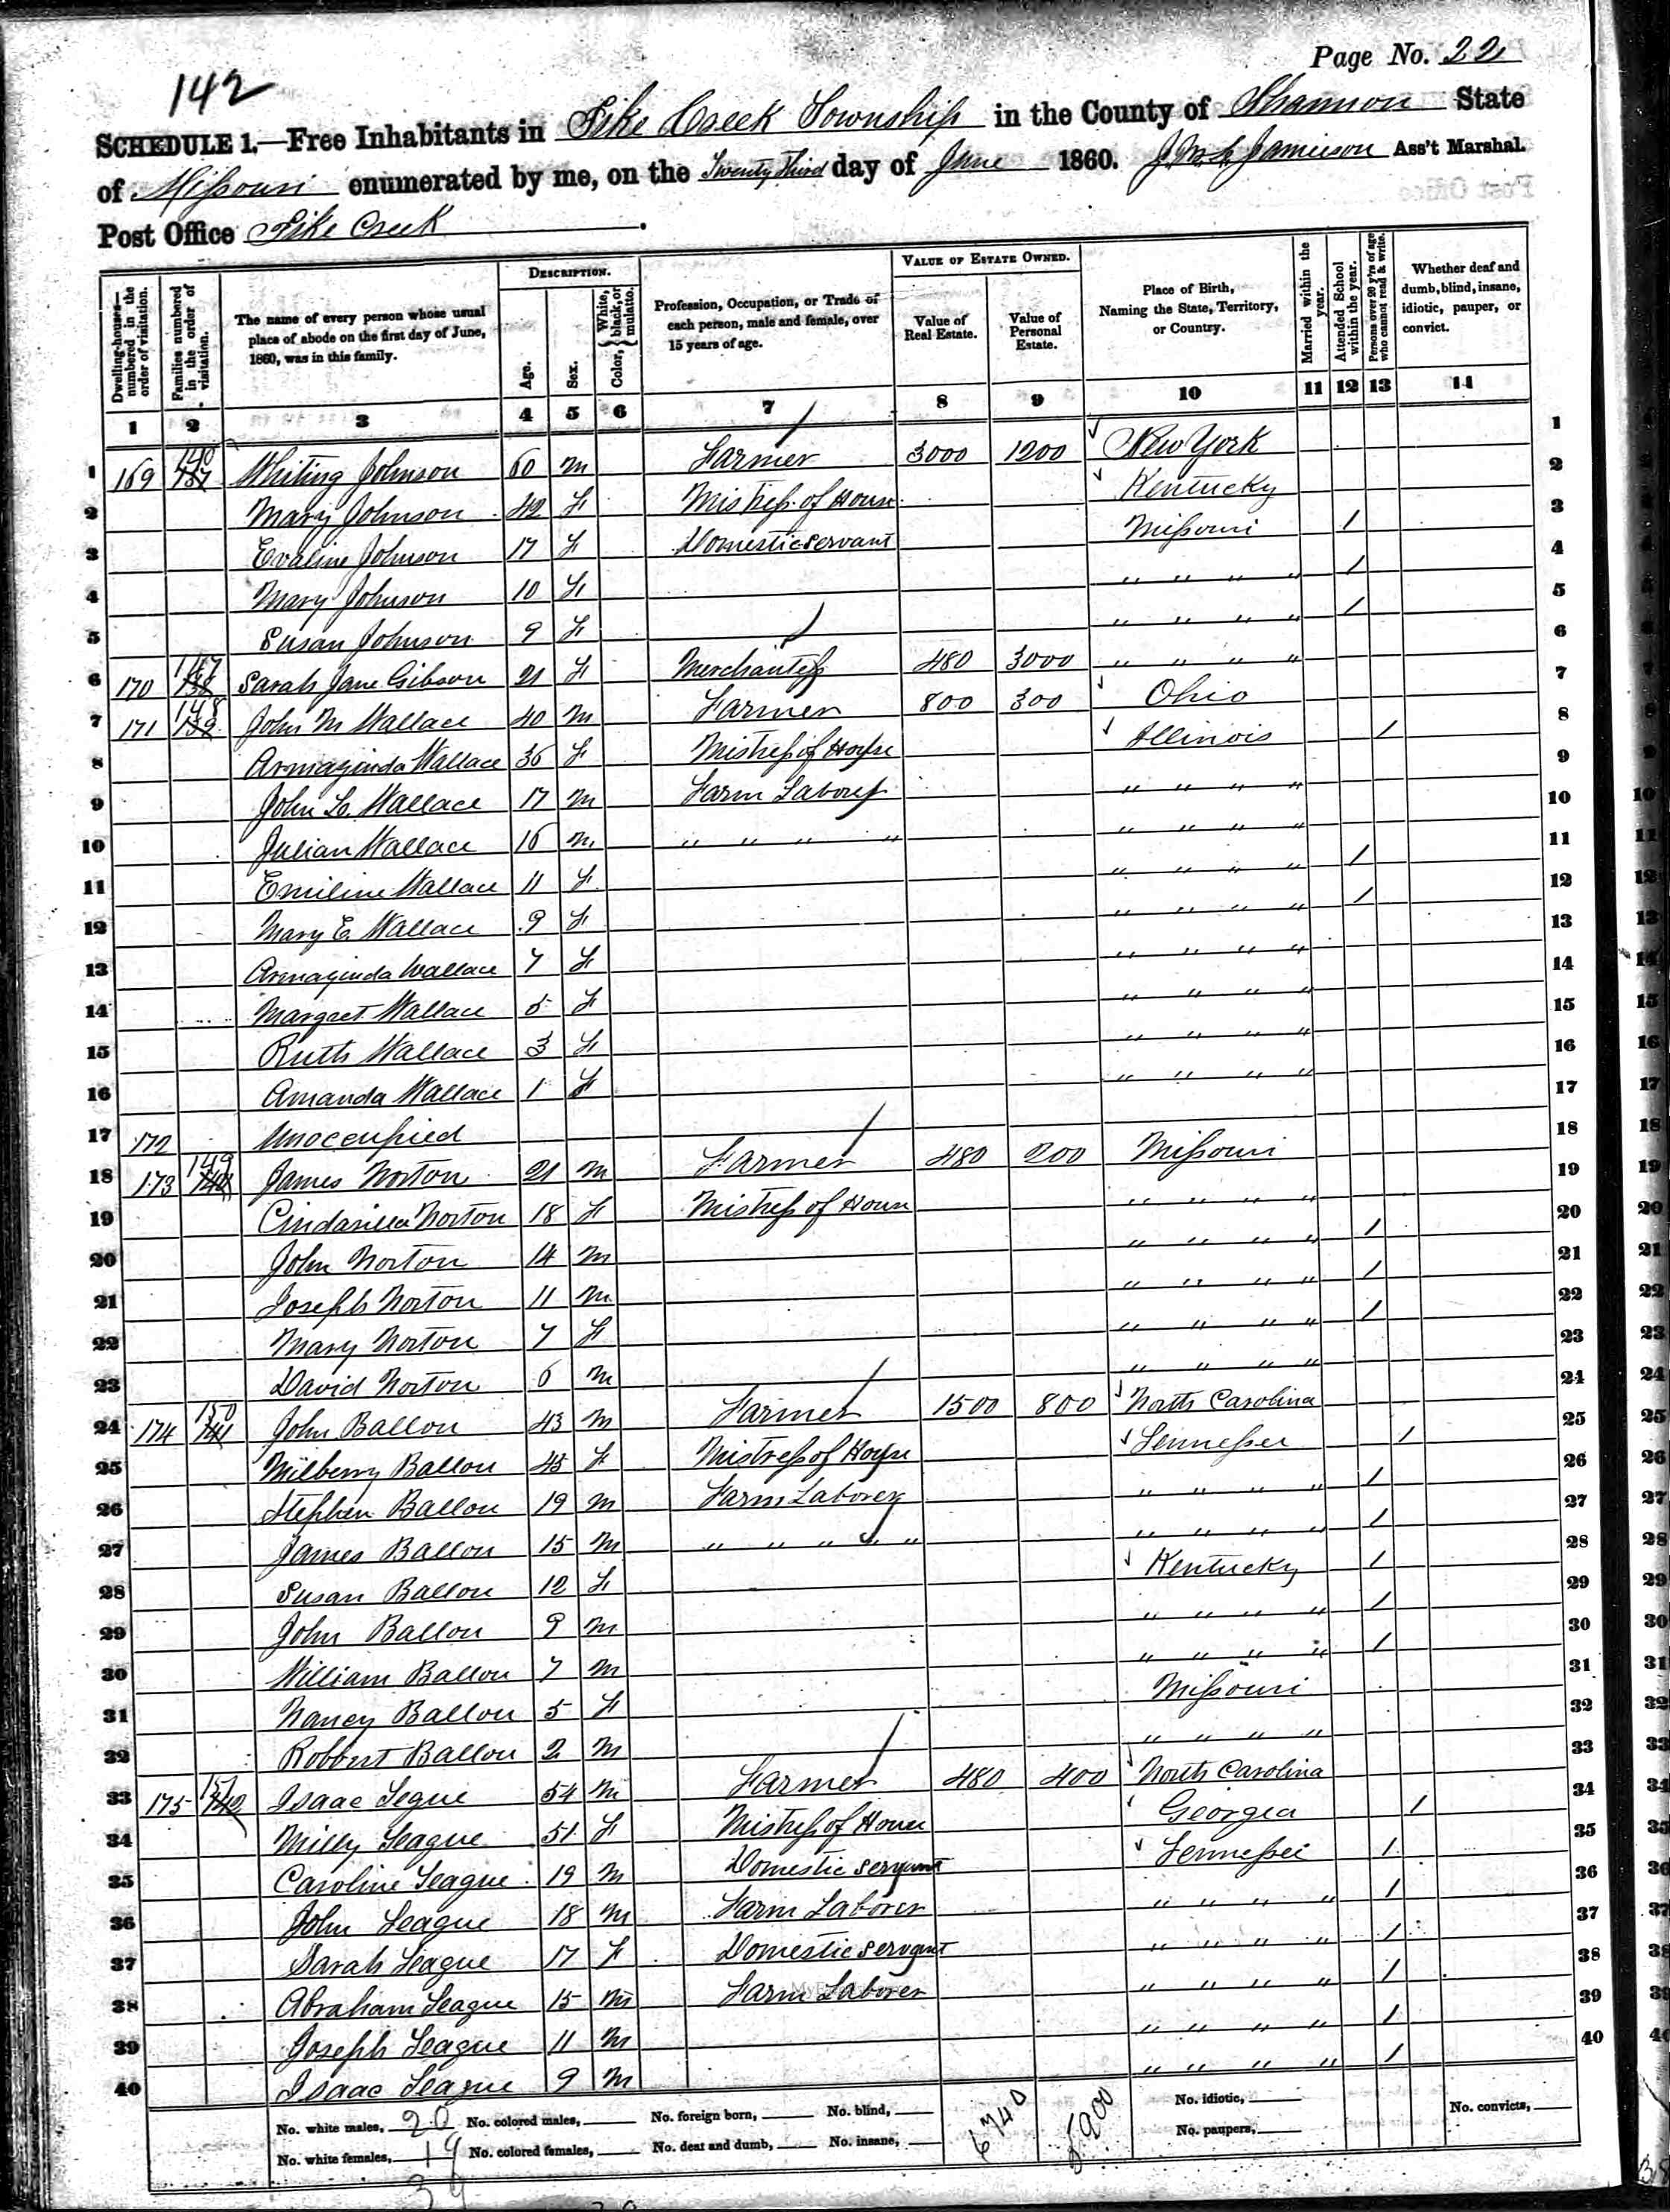 Page No. 22
142
SCHEDULE 1.—Free Inhabitants in Pike Creek Township in the County of Shannon State
of Missouri enumerated by me, on the Twenty Third day of June 1860. Jamieson Ass't Marshal.
Post Office Pike Creek.
Dwelling-houses—numbered in the order of visitation.
Families numbered in the order of visitation.
The name of every person whose usual place of abode on the first day of June, 1860, was in this family.
DESCRIPTION.
Age.
Sex.
Color, White, black, or mulatto.
Profession, Occupation, or Trade of each person, male and female, over 15 years of age.
VALUE OF ESTATE OWNED.
Value of Real Estate.
Value of Personal Estate.
Place of Birth, Naming the State, Territory, or Country.
Married within the year.
Attended School within the year.
Persons over 20 y'rs of age who cannot read & write.
Whether deaf and dumb, blind, insane, idiotic, pauper, or convict.
1 2 3 4 5 6 7 8 9 10 11 12 13 14
1 169 146 Whiting Johnson 60 m Farmer 3000 1200 New York 1
2 Mary Johnson 42 F Mistress of House Kentucky 2
3 Evaline Johnson 17 F Domestic servant Missouri / 3
4 Mary Johnson 10 F " " " " / 4
5 Susan Johnson 9 F " " " " / 5
6 170 147 Sarah Jane Gibson 21 F Merchantess 480 3000 " " " " 6
7 171 148 John M Wallace 40 m Farmer 800 300 Ohio 7
8 Armazinda Wallace 36 F Mistress of House Illinois / 8
9 John L. Wallace 17 m Farm Labours " " " " 9
10 Julian Wallace 16 m " " " " " " " " 10
11 Emiline Wallace 11 F " " " " / 11
12 Mary E. Wallace 9 F " " " " / 12
13 Armazinda Wallace 7 F " " " " 13
14 Margret Wallace 5 F " " " " 14
15 Ruth Wallace 3 F " " " " 15
16 Amanda Wallace 1 F " " " " 16
17 172 Unoccupied 17
18 173 149 James Norton 21 m Farmer 480 200 Missouri 18
19 Cindarilla Norton 18 F Mistress of House " " " " 19
20 John Norton 14 m " " " " / 20
21 Joseph Norton 11 m " " " " / 21
22 Mary Norton 7 F " " " " / 22
23 David Norton 6 m " " " " 23
24 174 150 John Ballou 43 m Farmer 1500 800 North Carolina 24
25 Milberry Ballou 45 F Mistress of House Tennessee / 25
26 Stephen Ballou 19 m Farm Laborer " " " " / 26
27 James Ballou 15 m " " " " " " " " / 27
28 Susan Ballou 12 F Kentucky / 28
29 John Ballou 9 m " " " " / 29
30 William Ballou 7 m " " " " / 30
31 Nancy Ballou 5 F Missouri 31
32 Robbert Ballou 2 m " " " " 32
33 175 151 Isaac Legue 54 m Farmer 480 400 North Carolina 33
34 Milly League 51 F Mistress of House Georgia / 34
35 Caroline League 19 m Domestic servant Tennessee / 35
36 John League 18 m Farm Laborer " " " " / 36
37 Sarah League 17 F Domestic servant " " " " / 37
38 Abraham League 15 m Farm Laborer " " " " / 38
39 Joseph League 11 m " " " " / 39
40 Isaac League 9 m " " " " / 40
No. white males, 20 No. colored males, No. foreign born, No. blind, 6740 5900 No. idiotic, No. convicts,
No. white females, 19 No. colored females, No. deaf and dumb, No. insane, No. paupers,
39